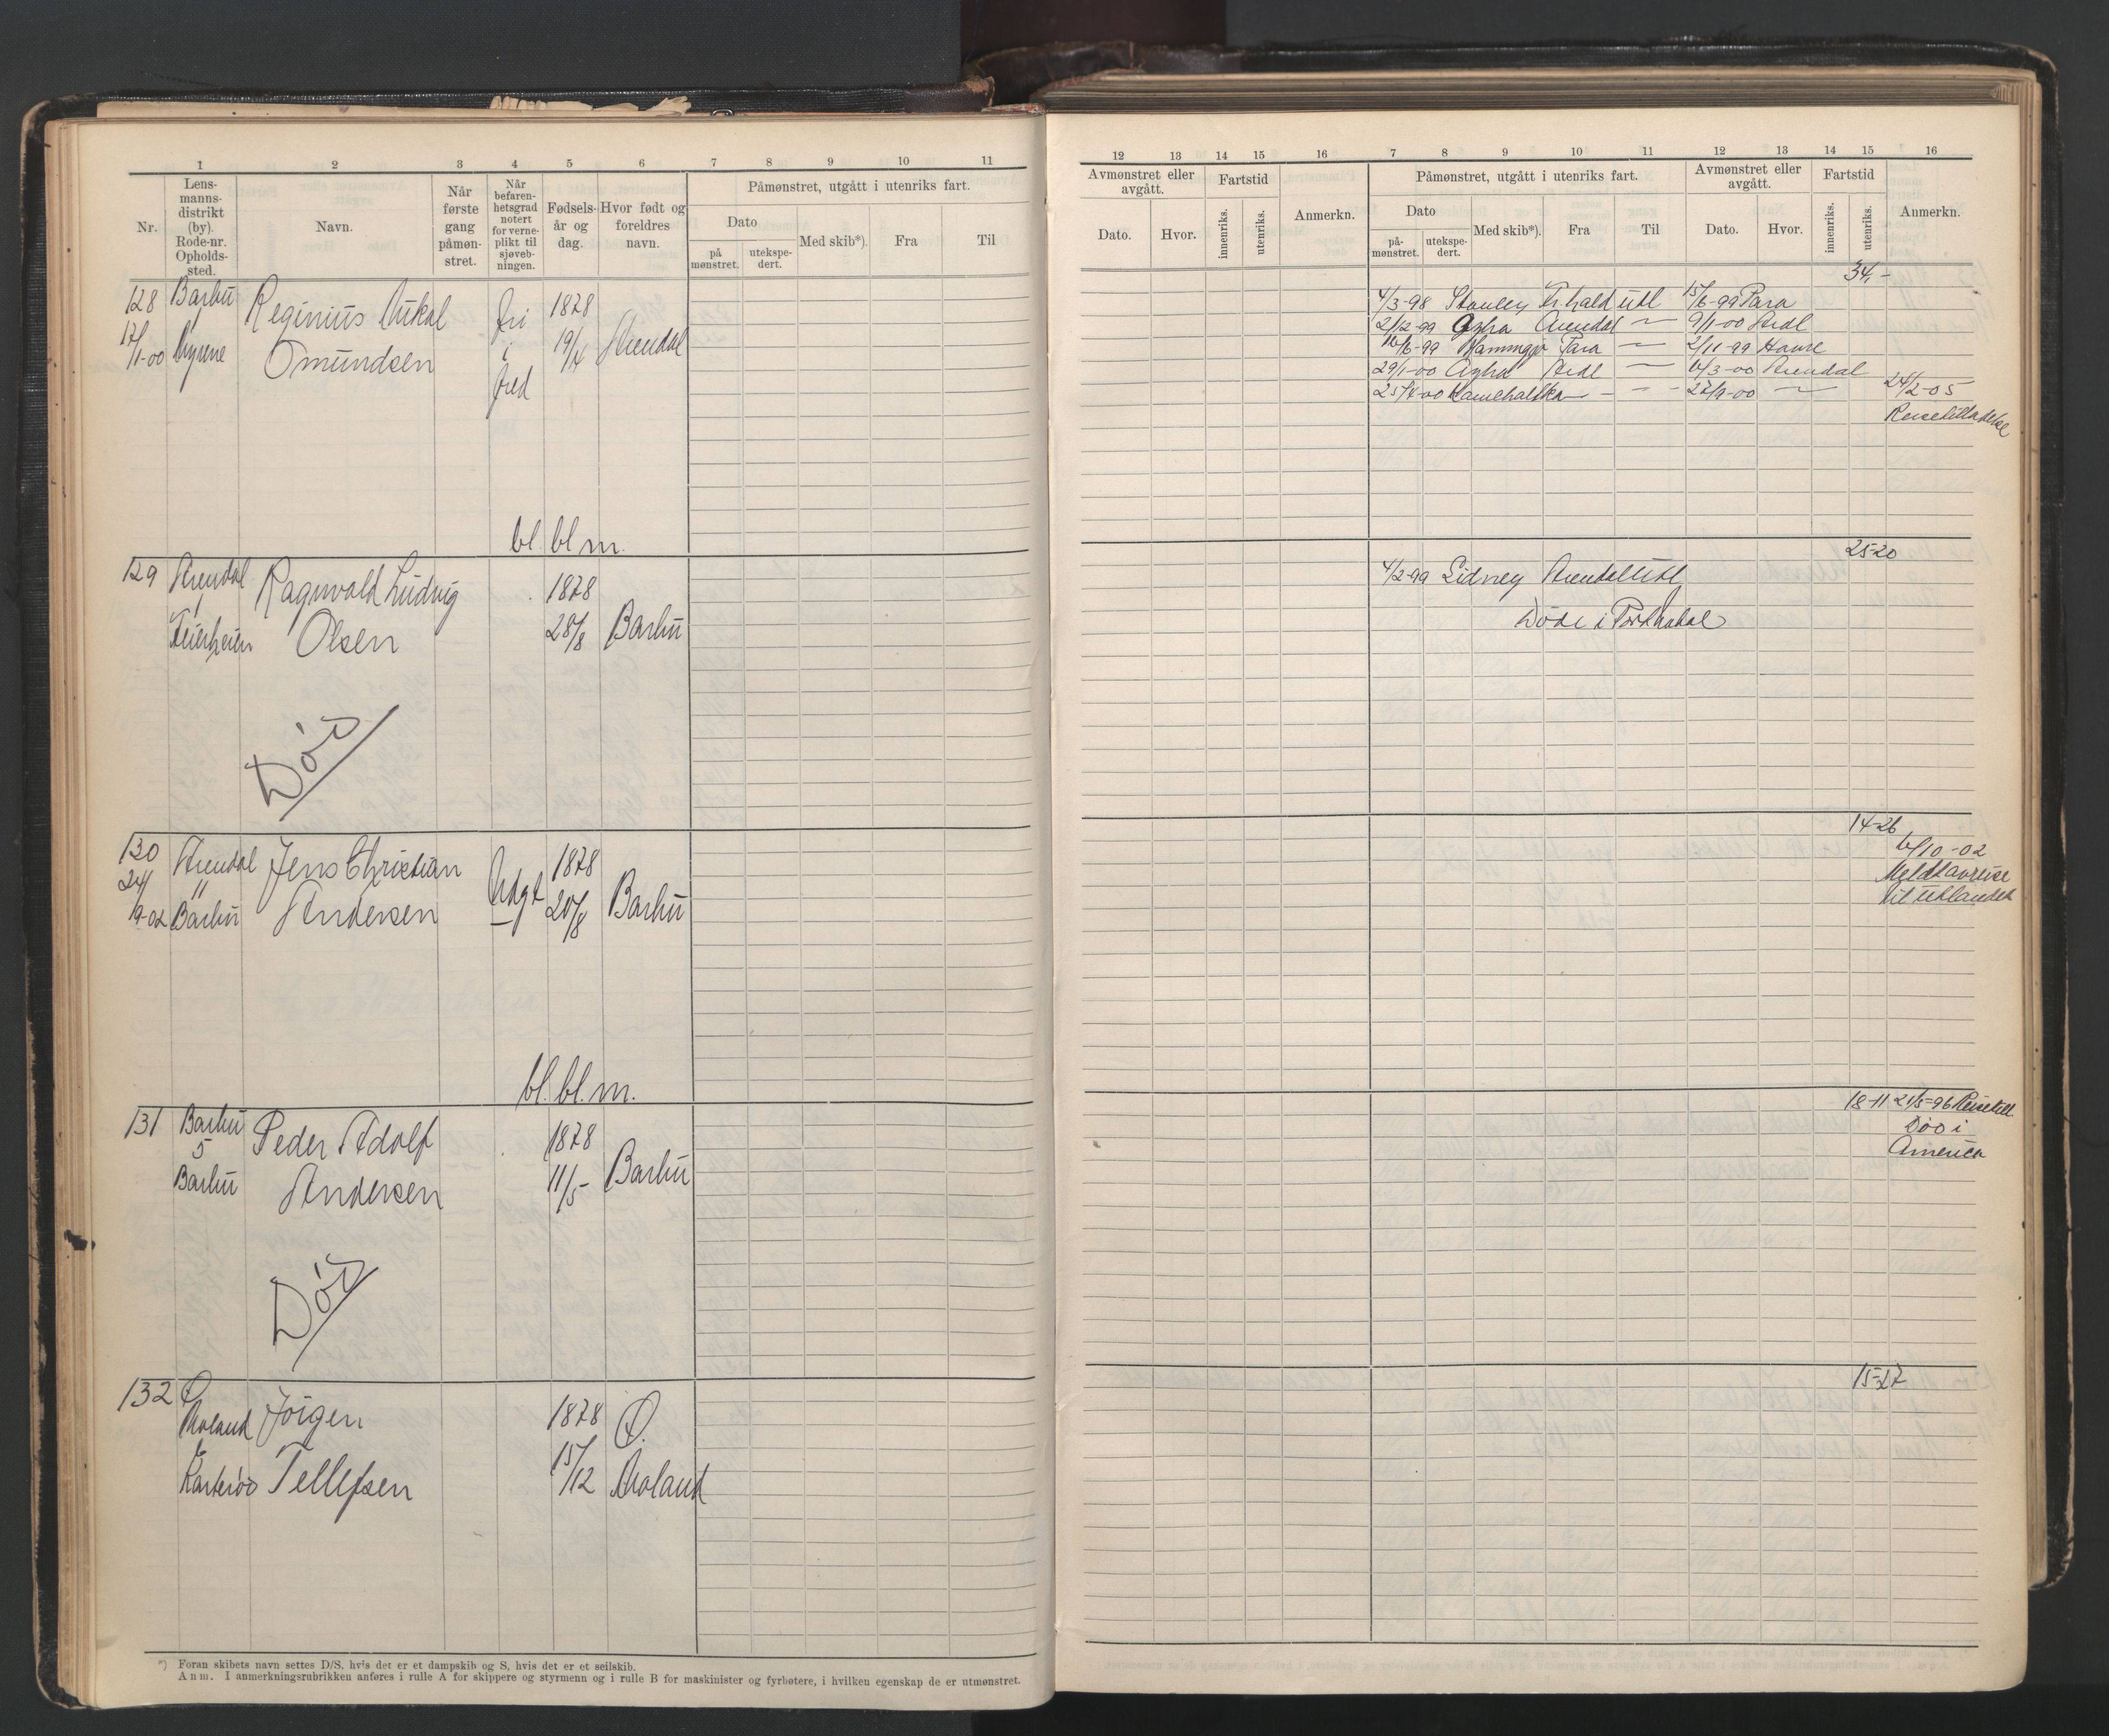 1 2 3 4 5 6 7 8 9 10 11
Nr.
Lens-
manns-
distrikt
(by).
Rode-nr.
Opholds-
sted.
Navn.
Når
første
gang
påmøn-
stret.
Når
befaren-
hetsgrad
notert
for verne-
plikt til
sjøveb-
ningen.
Fødsels-
år og
dag.
Hvor født og
foreldres
navn.
Påmønstret, utgått i utenriks fart.
Dato
på
mønstret.
utekspe-
dert.
Med skib*).
Fra
Til
128 Barbu Reginius 1878
fri
17/1-00 Omundsen i 19/4 Arendal
fred
bl. bl. m.
129 Arendal Ragnvald Ludvig 1878
Olsen 28/8 Barbu
Død
130 Arendal Jens Christian 1878
24/
9-02 Barbu Andersen Udgt 20/8 Barbu
bl. bl. m.
131 Barbu Peder Adolf 1878
5
Barbu Andersen 11/5 Barbu
Død
132 Ø.
Moland Jörgen 1878 Ø.
Tellefsen 15/12 Moland
*) Foran skibets navn settes D/S, hvis det er et dampskib og S, hvis det er et seilskib.
Anm. I anmerkningsrubrikken anføres i rulle A for skippere og styrmenn og i rulle B for maskinister og fyrbøtere, i hvilken egenskap de er utmønstret.
12 13 14 15 16 7 8 9 10 11 12 13 14 15 16
Avmønstret eller
avgått.
Dato.
Hvor.
Fartstid
innenriks.
utenriks.
Anmerkn.
Påmønstret, utgått i utenriks fart.
Dato
på-
mønstret.
utekspe-
dert.
Med skib*).
Fra
Til
Avmønstret eller
avgått.
Dato.
Hvor.
Fartstid
innenriks.
utenriks.
Anmerkn.
34,-
4/3-98 Stanley Fr.hald utl 15/6-99 Para
21/12-99 Arendal — 9/1-00
16/6-99 Para — 2/11-99
29/1-00 — 4/3-00 Arendal
25/4-00 — — 27/9-00 — 24/2-05
Reisetilladelse
25-20
4/2-99 Sidney Arendal utl
Døde i
14-26
4/10-02
Meldt avreise
til utlandet
18-11 21/5-96 Reisetill
Død i
America
15-27